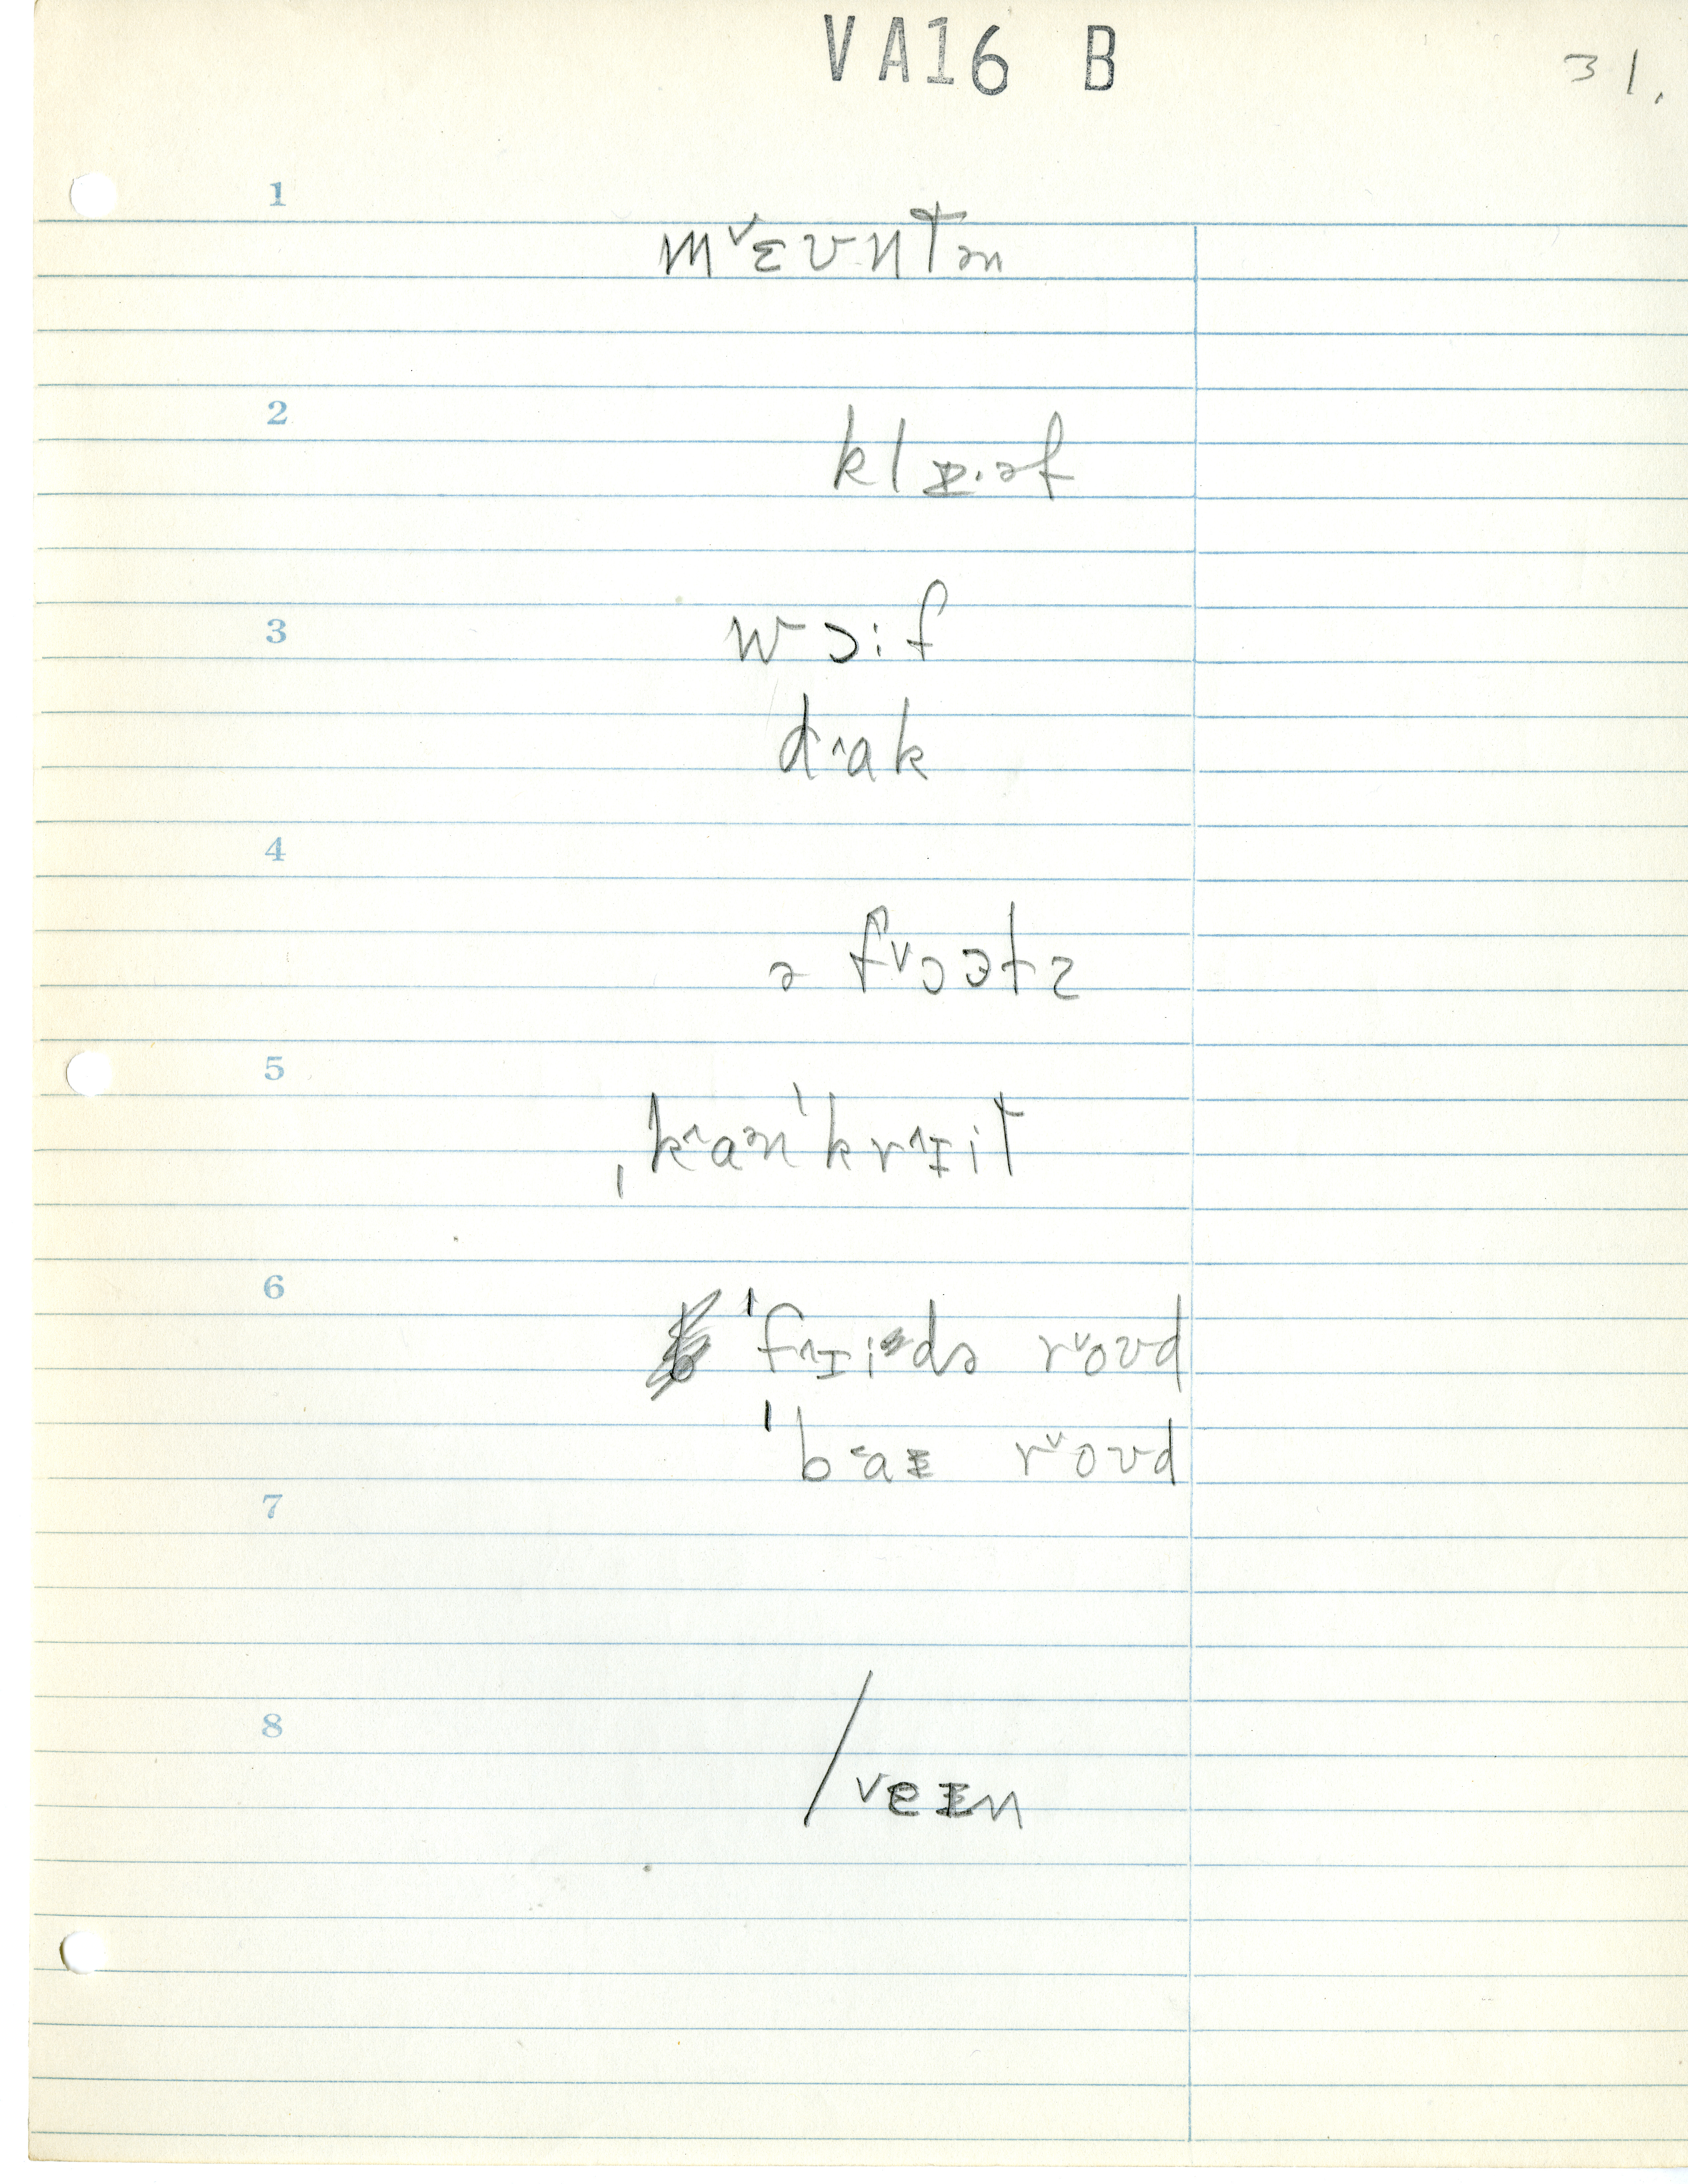 VA16 B
31.
1
m˅ɛʊntə̵n
2
klɪ.əf
3
wɔif
d˄ak
4
ə f˅ɔɘts
5
ˌk˄an ˈkr˄ɪit
6
ˈf˄ɪidə r˅oʊd
ˈb˂aɪ r˅oʊd
7
8
/˅eɪn